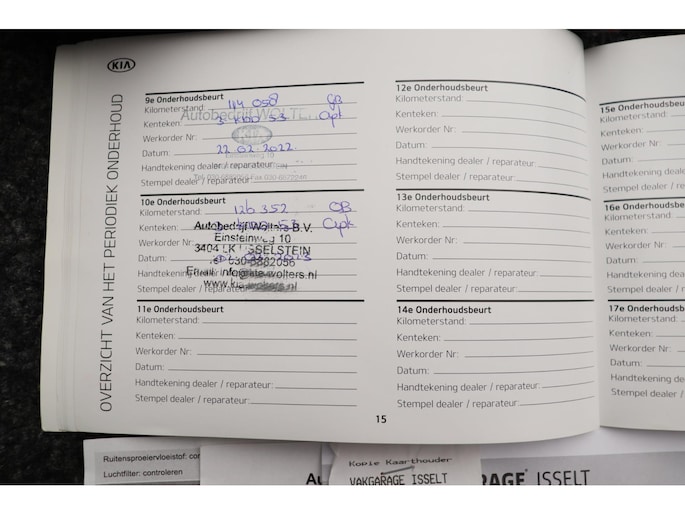 KIA
OVERZICHT VAN HET PERIODIEK ONDERHOUD
9e Onderhoudsbeurt
Kilometerstand: 114 058 GB
Autobedrijf WOLTERS
Kenteken: 53 Opt
Werkorder Nr:
Datum: 22.02.2022
Handtekening dealer / reparateur:
Stempel dealer / reparateur:
10e Onderhoudsbeurt
Kilometerstand: 126 352 GB
Autobedrijf Wolters B.V.
Kenteken: Opt
Einsteinweg 10
Werkorder Nr:
3404 LK IJSSELSTEIN
Datum:
030-6882056
Handtekening dealer
Email: info@kia-wolters.nl
Stempel dealer / reparateur:
www.kia-wolters.nl
11e Onderhoudsbeurt
Kilometerstand:
Kenteken:
Werkorder Nr:
Datum:
Handtekening dealer / reparateur:
Stempel dealer / reparateur:
12e Onderhoudsbeurt
Kilometerstand:
Kenteken:
Werkorder Nr:
Datum:
Handtekening dealer / reparateur:
Stempel dealer / reparateur:
13e Onderhoudsbeurt
Kilometerstand:
Kenteken:
Werkorder Nr:
Datum:
Handtekening dealer / reparateur:
Stempel dealer / reparateur:
14e Onderhoudsbeurt
Kilometerstand:
Kenteken:
Werkorder Nr:
Datum:
Handtekening dealer / reparateur:
Stempel dealer / reparateur:
15
15e Onderhoudsbeurt
Kilometerstand:
Kenteken:
Werkorder Nr:
Datum:
Handtekening
Stempel dealer
16e Onderhoudsbeurt
Kilometerstand:
Kenteken:
Werkorder Nr:
Datum:
Handtekening
Stempel dealer
17e Onderhoudsbeurt
Kilometerstand:
Kenteken:
Werkorder Nr:
Datum:
Handtekening dealer
Stempel dealer / re
Ruitensproeiervloeistof: con
Luchtfilter: controleren
Au
Kopie Kaarthouder
VAKGARAGE ISSELT
RAGE ISSELT